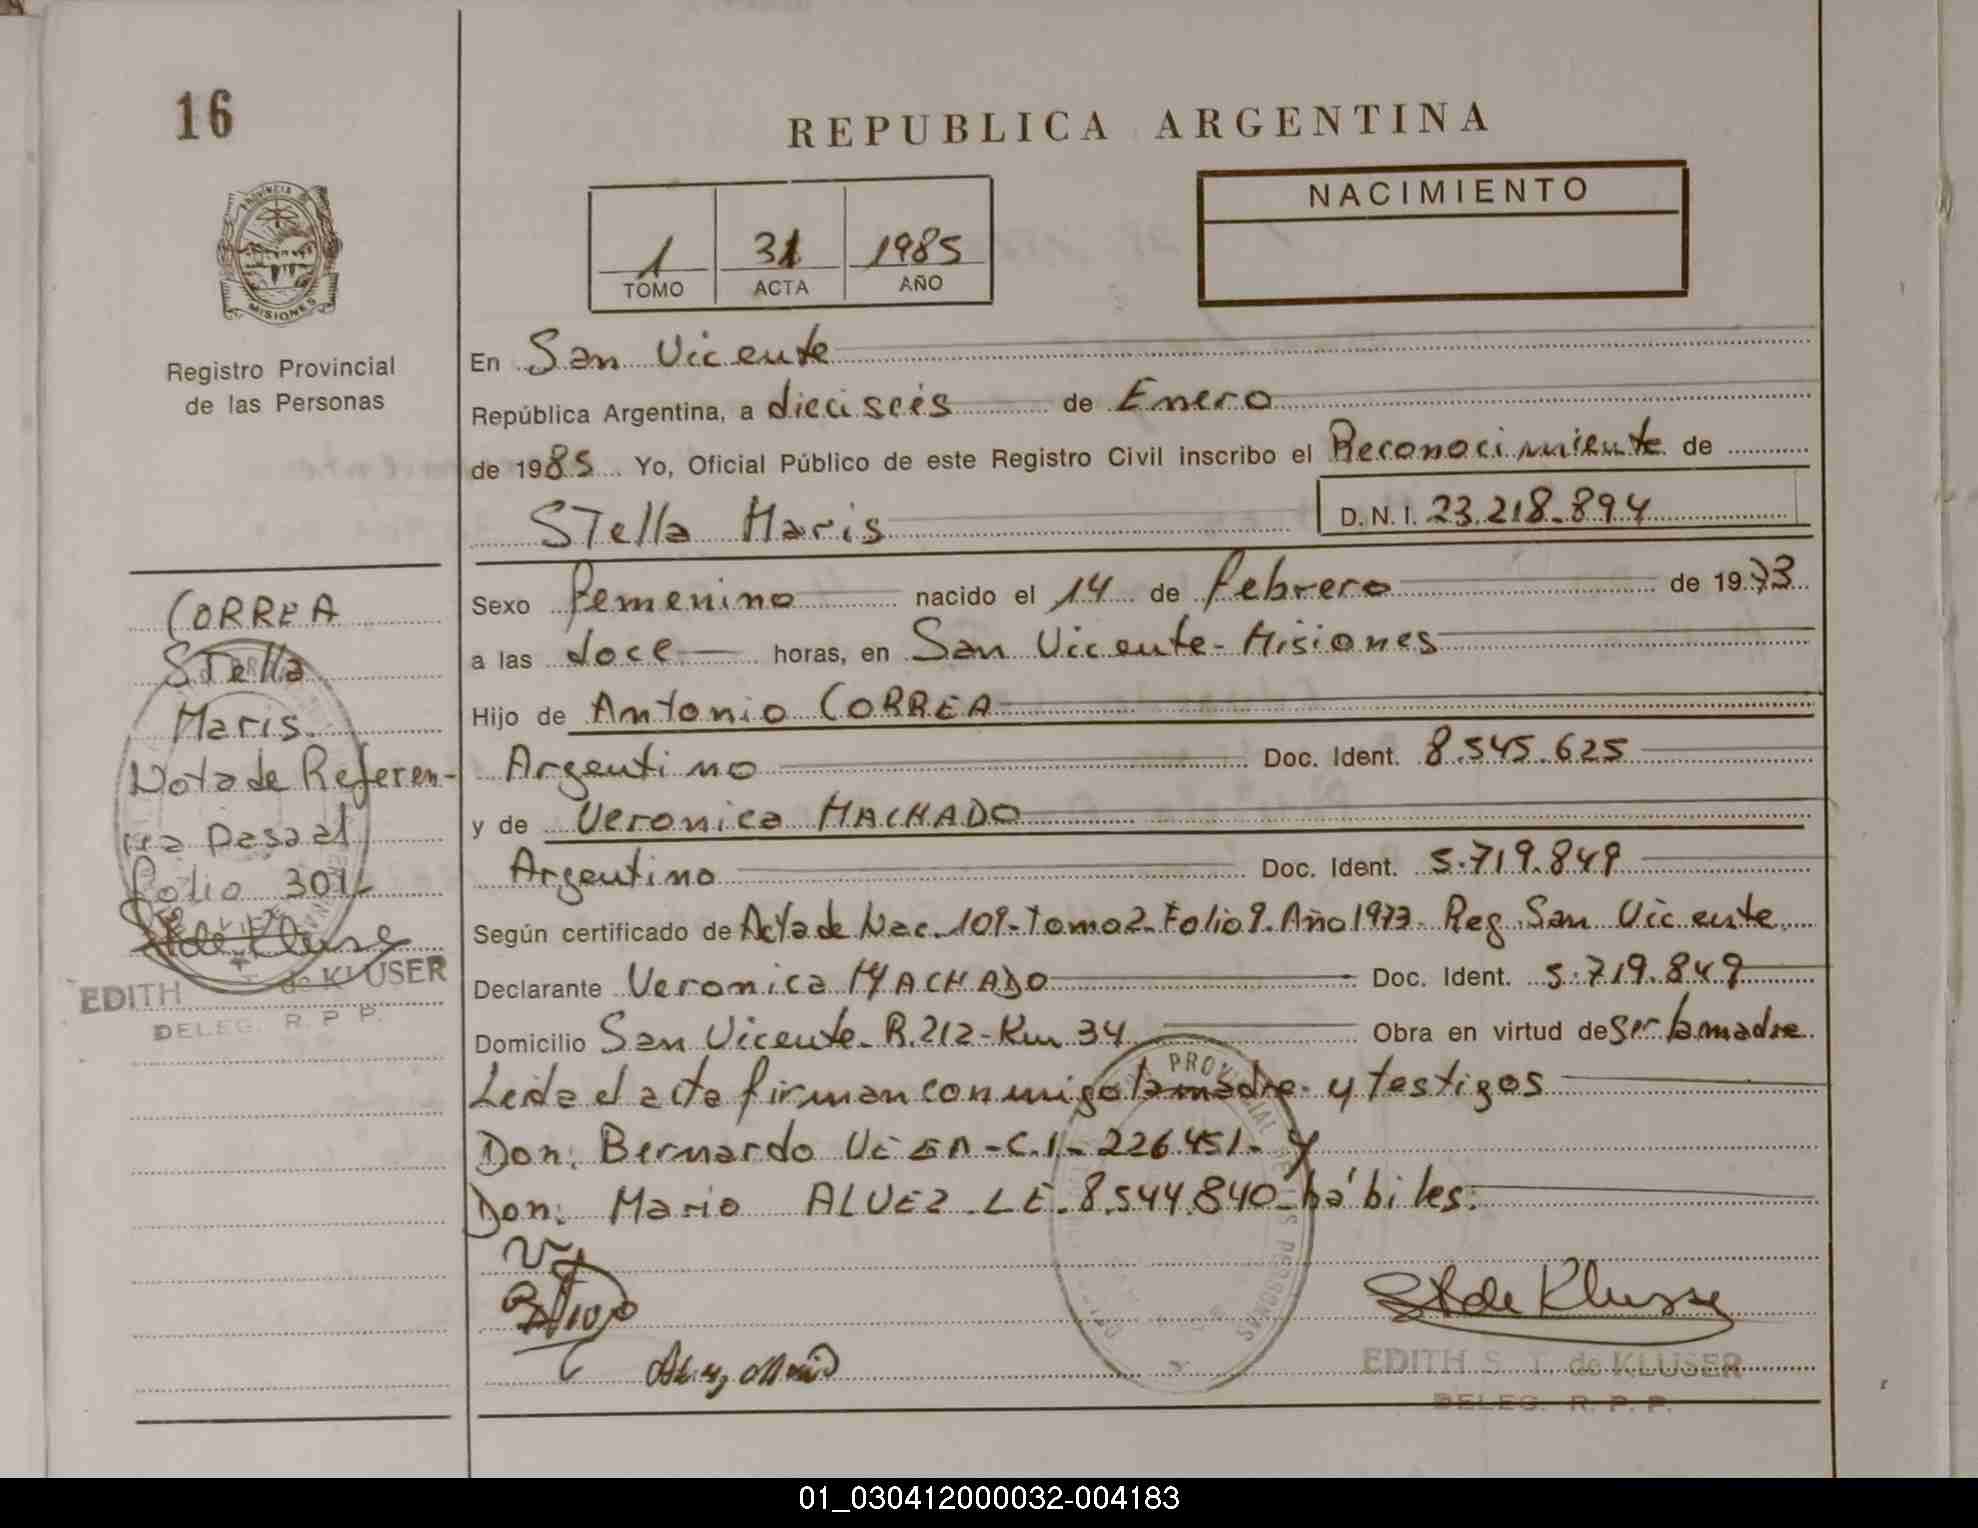 16
REPUBLICA ARGENTINA
NACIMIENTO
1 31 1985
TOMO ACTA AÑO
PROVINCIA DE
MISIONES
Registro Provincial
de las Personas
En San Vicente
República Argentina, a dieciseis de Enero
de 1985 Yo, Oficial Público de este Registro Civil inscribo el Reconocimiento de
Stella Maris D.N.I. 23.218.894
Sexo femenino nacido el 14 de febrero de 1973
a las doce horas, en San Vicente - Misiones
Hijo de Antonio CORREA
Argentino Doc. Ident. 8.545.625
y de Veronica MACHADO
Argentino Doc. Ident. 5.719.849
Según certificado de Acta de Nac. 109-Tomo 2-Folio 9-Año 1973- Reg. San Vicente
Declarante Veronica MACHADO Doc. Ident. 5.719.849
Domicilio San Vicente-R.212-Km 34 Obra en virtud de ser la madre
Leida el acta firman conmigo la madre y testigos
Don: Bernardo C.I- 226.451- y
Don: Mario ALVEZ-LE. 8.544.840-hábiles.
EDITH S. T. de KLUSER
DELEG. R. P. P.
CORREA
Stella
Maris.
Nota de Referen-
cia pasa al
folio 301-
EDITH de KLUSER
DELEG. R. P. P.
01_030412000032-004183